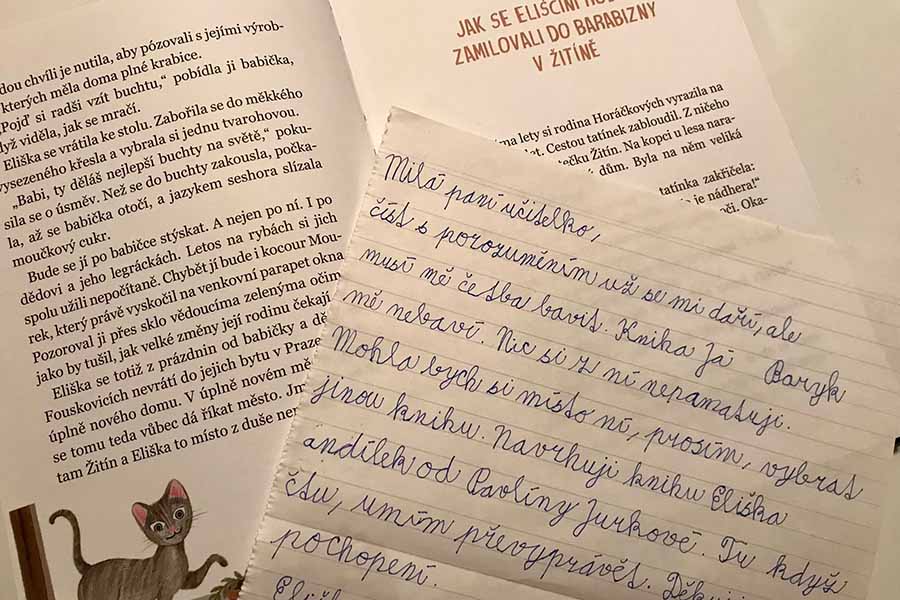 dou chvíli je nutila, aby pózovali s jejími výrob-
kterých měla doma plné krabice.
„Pojď si radši vzít buchtu,“ pobídla ji babička,
když viděla, jak se mračí.
Eliška se vrátila ke stolu. Zabořila se do měkkého
vysezeného křesla a vybrala si jednu tvarohovou.
„Babi, ty děláš nejlepší buchty na světě,“ poku-
sila se o úsměv. Než se do buchty zakousla, počka-
la, až se babička otočí, a jazykem seshora slízala
moučkový cukr.
Bude se jí po babičce stýskat. A nejen po ní. I po
dědovi a jeho legráckách. Letos na rybách si jich
spolu užili nepočítaně. Chybět jí bude i kocour Mou-
rek, který právě vyskočil na venkovní parapet okna
Pozoroval ji přes sklo vědoucíma zelenýma očim
jako by tušil, jak velké změny její rodinu čekají
Eliška se totiž z prázdnin od babičky a dě
Fouskovicích nevrátí do jejich bytu v Praze
úplně nového domu. V úplně novém mě
se tomu teda vůbec dá říkat město. Jm
tam Žitín a Eliška to místo z duše ner
JAK SE ELIŠČINI
ZAMILOVALI DO BARABIZNY
V ŽITÍNĚ
ma lety si rodina Horáčkových vyrazila na
let. Cestou tatínek zabloudil. Z ničeho
ečku Žitín. Na kopci u lesa nara-
dům. Byla na něm veliká
tatínka zakřičela:
je nádhera!“
oči. Oka-
Milá paní učitelko,
číst s porozuměním už se mi daří, ale
musí mě četba bavit. Kniha Já Baryk
mě nebaví. Nic si z ní nepamatuji.
Mohla bych si místo ní, prosím, vybrat
jinou knihu. Navrhuji knihu Eliška
andílek od Pavlíny Jurkové. Tu když
čtu, umím převyprávět. Děkuji
pochopení.